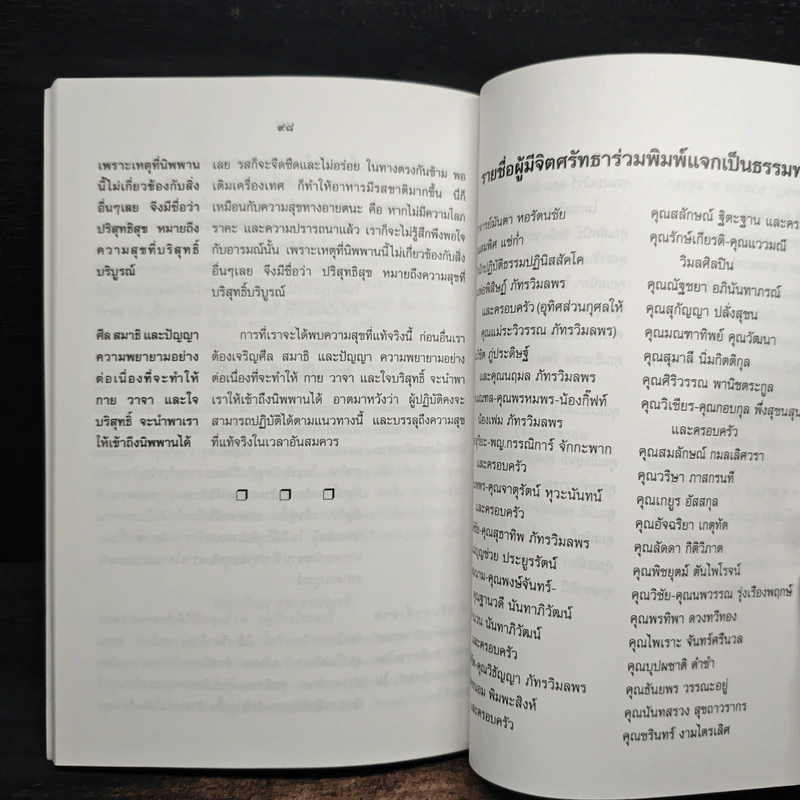 ๙๘
เพราะเหตุที่นิพพาน
นี้ไม่เกี่ยวข้องกับสิ่ง
อื่นๆเลย จึงมีชื่อว่า
ปริสุทธิสุข หมายถึง
ความสุขที่บริสุทธิ์
บริบูรณ์
เลย รสก็จะจืดชืดและไม่อร่อย ในทางตรงกันข้าม พอ
เติมเครื่องเทศ ก็ทำให้อาหารมีรสชาติมากขึ้น นี่ก็
เหมือนกับความสุขทางอายตนะ คือ หากไม่มีความโลภ
ราคะ และความปรารถนาแล้ว เราก็จะไม่รู้สึกพึงพอใจ
กับอารมณ์นั้น เพราะเหตุที่นิพพานนี้ไม่เกี่ยวข้องกับสิ่ง
อื่นๆเลย จึงมีชื่อว่า ปริสุทธิสุข หมายถึงความสุขที่
บริสุทธิ์บริบูรณ์
ศีล สมาธิ และปัญญา
ความพยายามอย่าง
ต่อเนื่องที่จะทำให้
กาย วาจา และใจ
บริสุทธิ์ จะนำพาเรา
ให้เข้าถึงนิพพานได้
การที่เราจะได้พบความสุขที่แท้จริงนี้ ก่อนอื่นเรา
ต้องเจริญศีล สมาธิ และปัญญา ความพยายามอย่าง
ต่อเนื่องที่จะทำให้ กาย วาจา และใจบริสุทธิ์ จะนำพา
เราให้เข้าถึงนิพพานได้ อาตมาหวังว่า ผู้ปฏิบัติคงจะ
สามารถปฏิบัติได้ตามแนวทางนี้ และบรรลุถึงความสุข
ที่แท้จริงในเวลาอันสมควร
รายชื่อผู้มีจิตศรัทธาร่วมพิมพ์แจกเป็นธรรมท
จารย์มันตา หอรัตนชัย
แซ่กำ่
ปฏิบัติธรรมปฏินิสสัคโค
พิสิษฏ์ ภัทรวิมลพร
และครอบครัว (อุทิศส่วนกุศลให้
คุณแม่ระวิวรรณ ภัทรวิมลพร)
ภู่ประดิษฐ์
และคุณนฤมล ภัทรวิมลพร
คุณพรหมพร-น้องกิ๊ฟท์
น้องเฟม ภัทรวิมลพร
พญ.กรรณิการ์ จักกะพาก
และครอบครัว
คุณจาตุรัตน์ หุวะนันทน์
และครอบครัว
คุณสุธาทิพ ภัทรวิมลพร
ประยูรรัตน์
คุณพงษ์จันทร์-
นันทาภิวัฒน์
นันทาภิวัฒน์
และครอบครัว
คุณวิธัญญา ภัทรวิมลพร
พิมพะสิงห์
และครอบครัว
คุณสลักษณ์ ฐิตะฐาน และคร
คุณรักษ์เกียรติ-คุณแววมณี
วิมลศิลปิน
คุณณัฐชยา อภินันทาภรณ์
คุณสุกัญญา ปลั่งสุขน
คุณมณฑาทิพย์ คุณวัฒนา
คุณสุมาลี นิ่มกิตติกุล
คุณศิริวรรณ พานิชตระกูล
คุณวิเชียร-คุณกอบกุล พึ่งสุขนสุน
และครอบครัว
คุณสมลักษณ์ กมลเลิศวรา
คุณวริษา ภาสกรนที
คุณเกยูร อัสสกุล
คุณอัจฉริยา เกตุทัต
คุณลัดดา กิติวิภาต
คุณพิชยุตม์ ตันไพโรจน์
คุณวิชัย-คุณนพวรรณ รุ่งเรืองพฤกษ์
คุณพรทิพา ดวงทวีทอง
คุณไพเราะ จันทร์ศรีนวล
คุณบุปผชาติ ดำขำ
คุณธันยพร วรรณะอยู่
คุณนันทสรวง สุขถาวรากร
คุณชรินทร์ งามไตรเลิศ